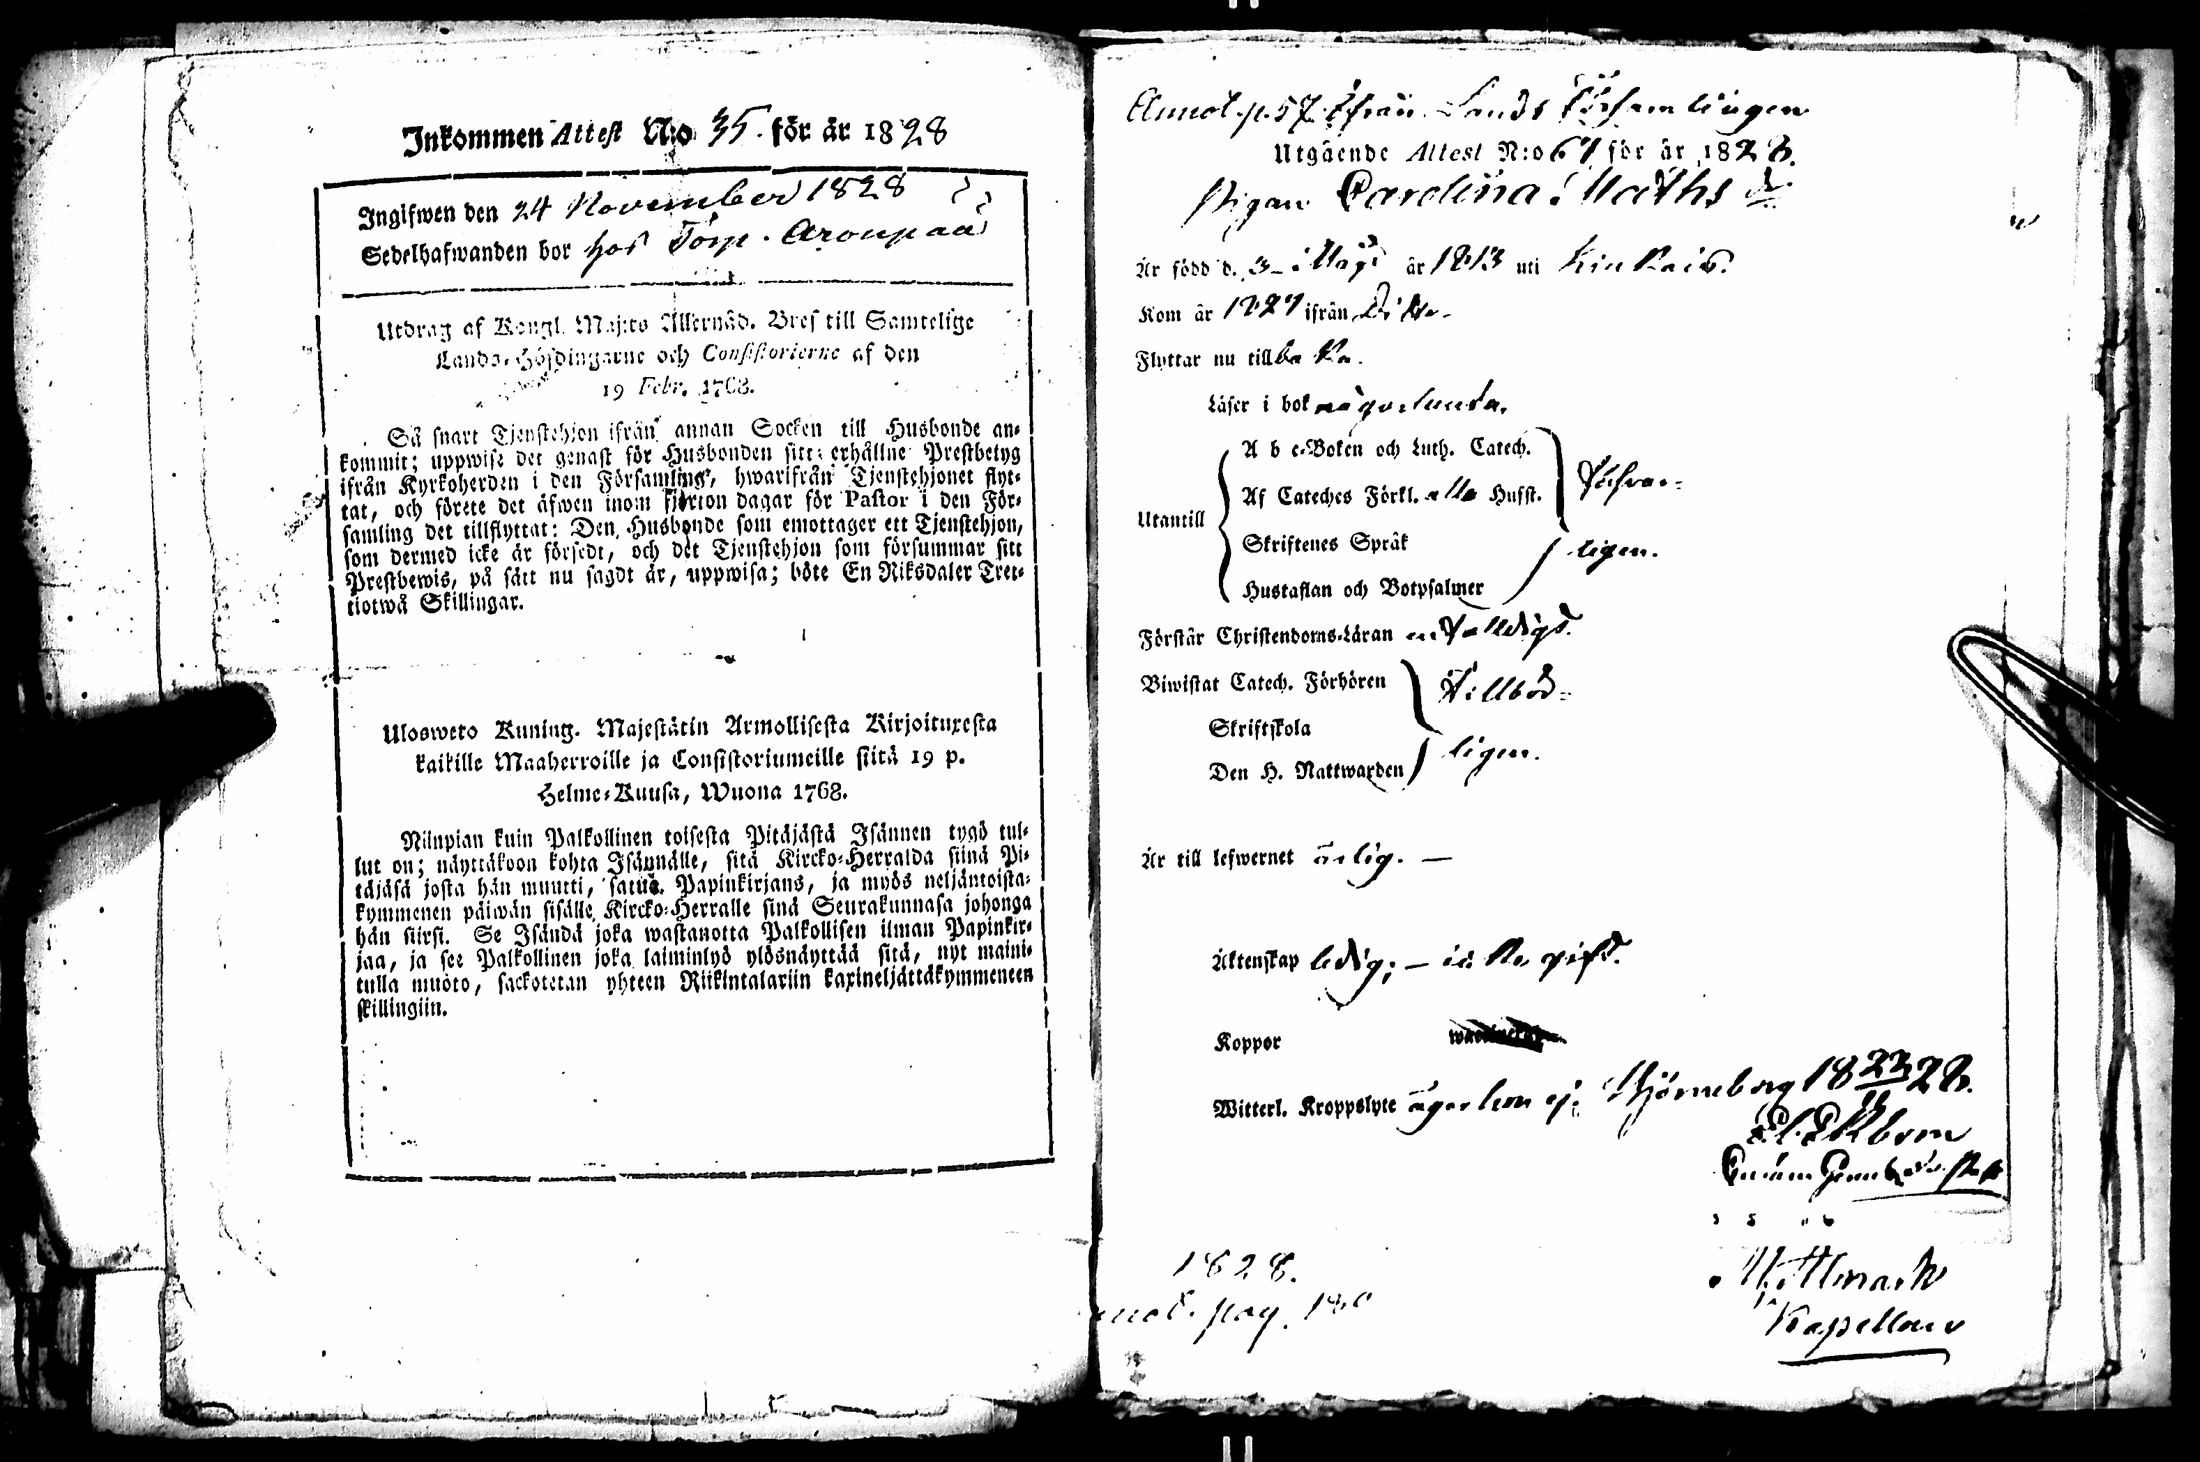 Inkommen Attest N:o 35. för år 1828
Ingifwen den 24 November 1828
Sedelhafwanden bor hos Torp. Aronpää
Utdrag af Kongl. Maj:ts Allernåd. Bref till Samtelige
Lands-Höfdingarne och Consistorierne af den
19 Febr. 1768.
Så snart Tjenstehjon ifrån annan Socken till Husbonde an-
kommit; uppwise det genast för Husbonden sitt erhållne Prestbetyg
ifrån Kyrkoherden i den Församling, hwarifrån Tjenstehjonet flyt-
tat, och förete det äfwen inom fjorton dagar för Pastor i den För-
samling det tillflyttat: Den Husbonde som emottager ett Tjenstehjon,
som dermed icke är försedt, och det Tjenstehjon som försummar sitt
Prestbewis, på sätt nu sagdt är, uppwisa; böte En Riksdaler Tret-
tiotwå Skillingar.
Ulosweto Kuning. Majestätin Armollisesta Kirjoituxesta
kaikille Maaherroille ja Consistoriumeille siitä 19 p.
Helme-Kuusa, Wuona 1768.
Niinpian kuin Palkollinen toisesta Pitäjästä Isännen tygö tul-
lut on; näyttäkoon kohta Isännälle, sitä Kircko-Herralda siinä Pi-
täjäsä josta hän muutti, satua Papinkirjans, ja myös neljäntoista-
kymmenen päiwän sisälle Kircko-Herralle siinä Seurakunnasa johonga
hän siirsi. Se Isändä joka wastanotta Palkollisen ilman Papinkir-
jaa, ja see Palkollinen joka laiminlyö ylösnäyttää sitä, nyt maini-
tulla muoto, sackotetan yhteen Riikintalariin kaxineljättäkymmeneen
skillingiin.
Annot. p. 57. Ifrån Lands Församlingen
Utgående Attest N:o 67 för år 1828.
Pigan Carolina Maths dr
Är född d. 3 Maji år 1813 uti Kinkais.
Kom år 1827 ifrån Dito
Flyttar nu tillbaka.
Läser i bok någorlunda.
A b c-Boken och Luth. Catech.
Af Cateches Förkl. alla Husst. Förswar-
Utantill
Skriftenes Språk ligen.
Hustaflan och Botpsalmer
Förstår Christendoms-Läran enfaldigt.
Biwistat Catech. Förhören Tillbör-
Skriftskola
Den H. Nattwarden ligen.
Är till lefwernet ärlig. —
Äktenskap ledig; — icke gift.
Koppor
Witterl. Kroppslyte äger hon ej. Björneborg 1828.
Ekbom
1828.
pag. 180
Kapellan